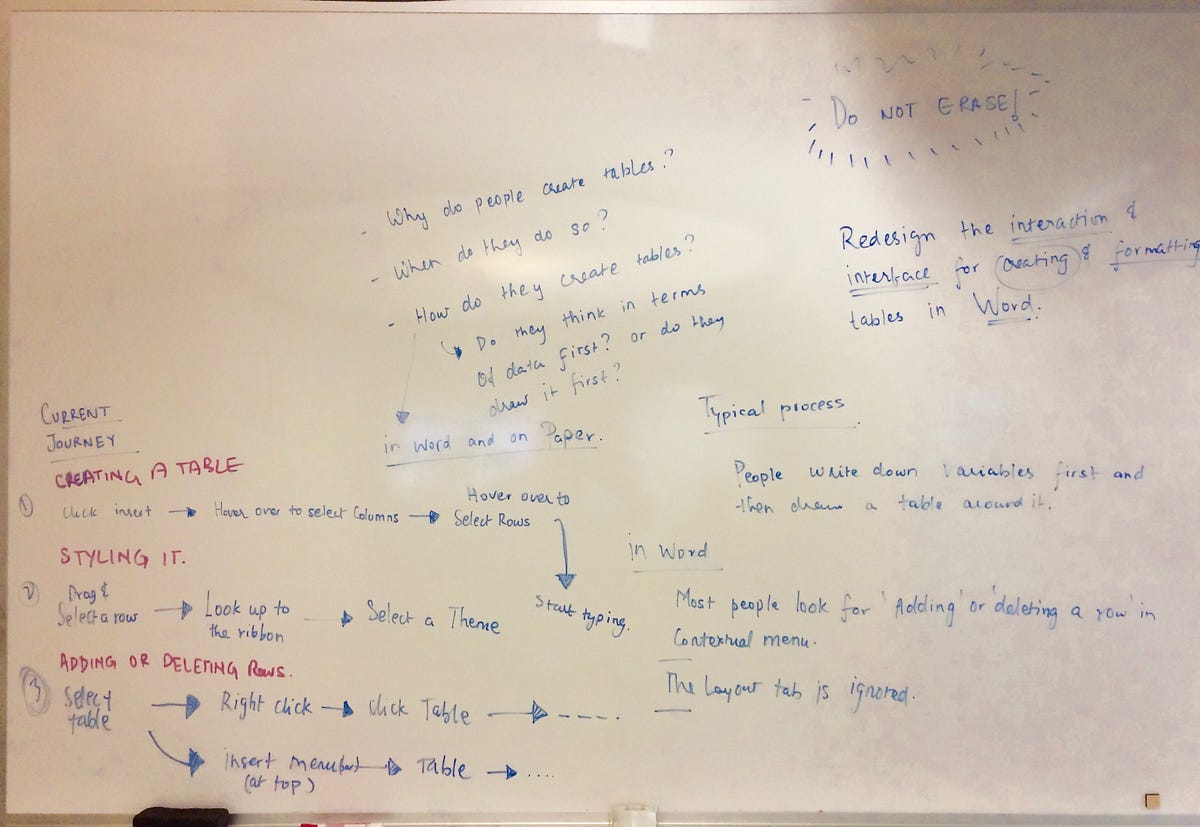 Do NOT ERASE!
- Why do people create tables?
- When do they do so?
- How do they create tables?
Do they think in terms
of data first? or do they
draw it first?
in Word and on Paper.
Redesign the interaction &
interface for creating & formatting
tables in Word.
CURRENT
JOURNEY
CREATING A TABLE
① Click insert → Hover over to select Columns → Hover over to
Select Rows
Start typing.
STYLING IT.
② Drag &
Select a row → Look up to
the ribbon → Select a Theme
ADDING OR DELETING ROWS.
③ Select
table → Right click → Click Table → ----.
Insert menu (at top) → Table → ....
Typical process
People write down variables first and
then draw a table around it.
in Word
Most people look for 'Adding' or 'deleting a row' in
Contextual menu.
The Layout tab is ignored.